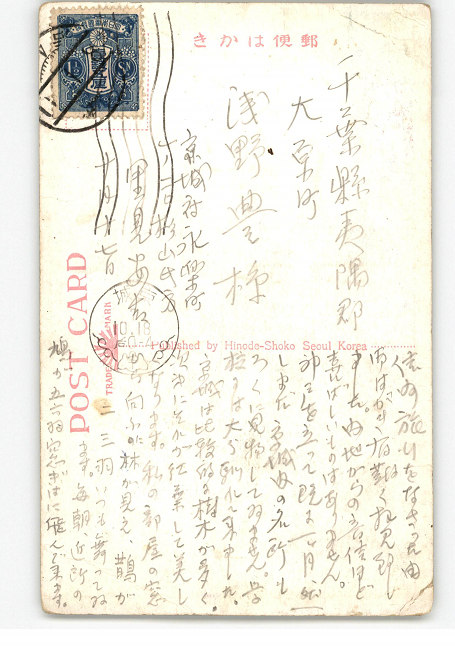 郵便はかき
千葉縣夷隅郡
大原町
浅野豊様
京城府永楽町
杉山氏方
里見安吉
十月十七日
10.18
POST CARD
TRADE MARK
Published by Hinode-Shoko Seoul Korea
旅行をなさる由
御はがき有難く拝見致し
ました。内地からの音信ほど
喜ばしいものはありません。
神戸を立って既に一百日然
しまだ京城内の名所も
ろくに見物して居ません。学
校には大分馴れて来ました。
京城は比較的樹木が多く、
それが紅葉して美し
くなります。私の部屋の窓
から向ふに林が見え、鵲が
二三羽いつも舞ってゐ
ます。毎朝近所の
鳩が五六羽窓ぎはに飛んで来ます。